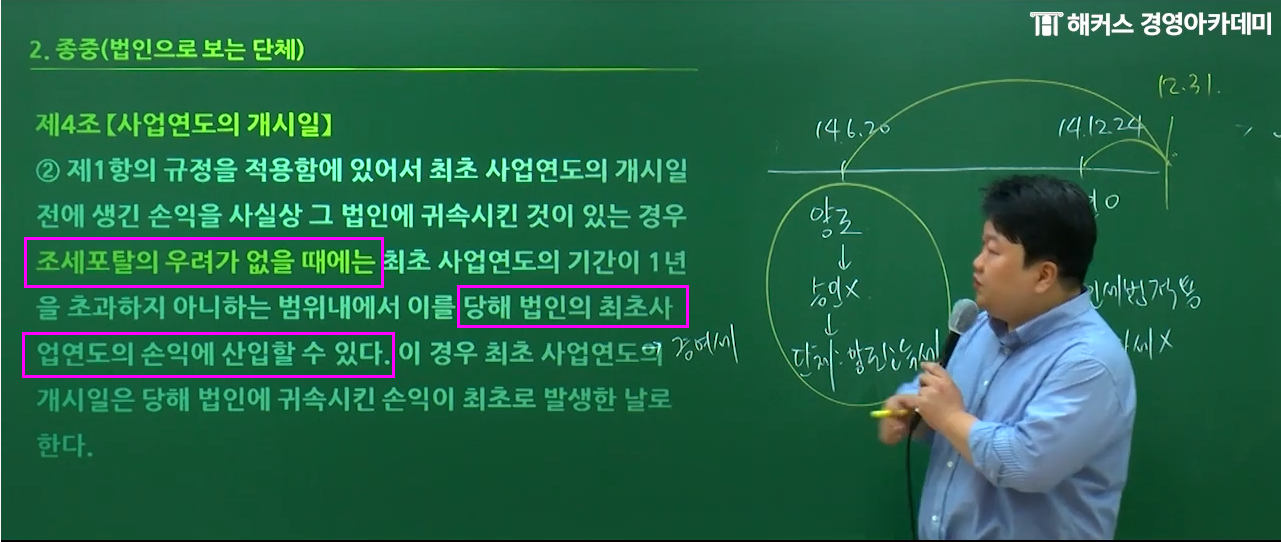 해커스 경영아카데미
2. 종중(법인으로 보는 단체)
제4조【사업연도의 개시일】
② 제1항의 규정을 적용함에 있어서 최초 사업연도의 개시일
전에 생긴 손익을 사실상 그 법인에 귀속시킨 것이 있는 경우
조세포탈의 우려가 없을 때에는 최초 사업연도의 기간이 1년
을 초과하지 아니하는 범위내에서 이를 당해 법인의 최초사
업연도의 손익에 산입할 수 있다. 이 경우 최초 사업연도의
개시일은 당해 법인에 귀속시킨 손익이 최초로 발생한 날로
한다.
12.31.
14.6.20
14.12.24
양도
↓
승인X
↓
단체: 양도소득세
인세법 적용
세X